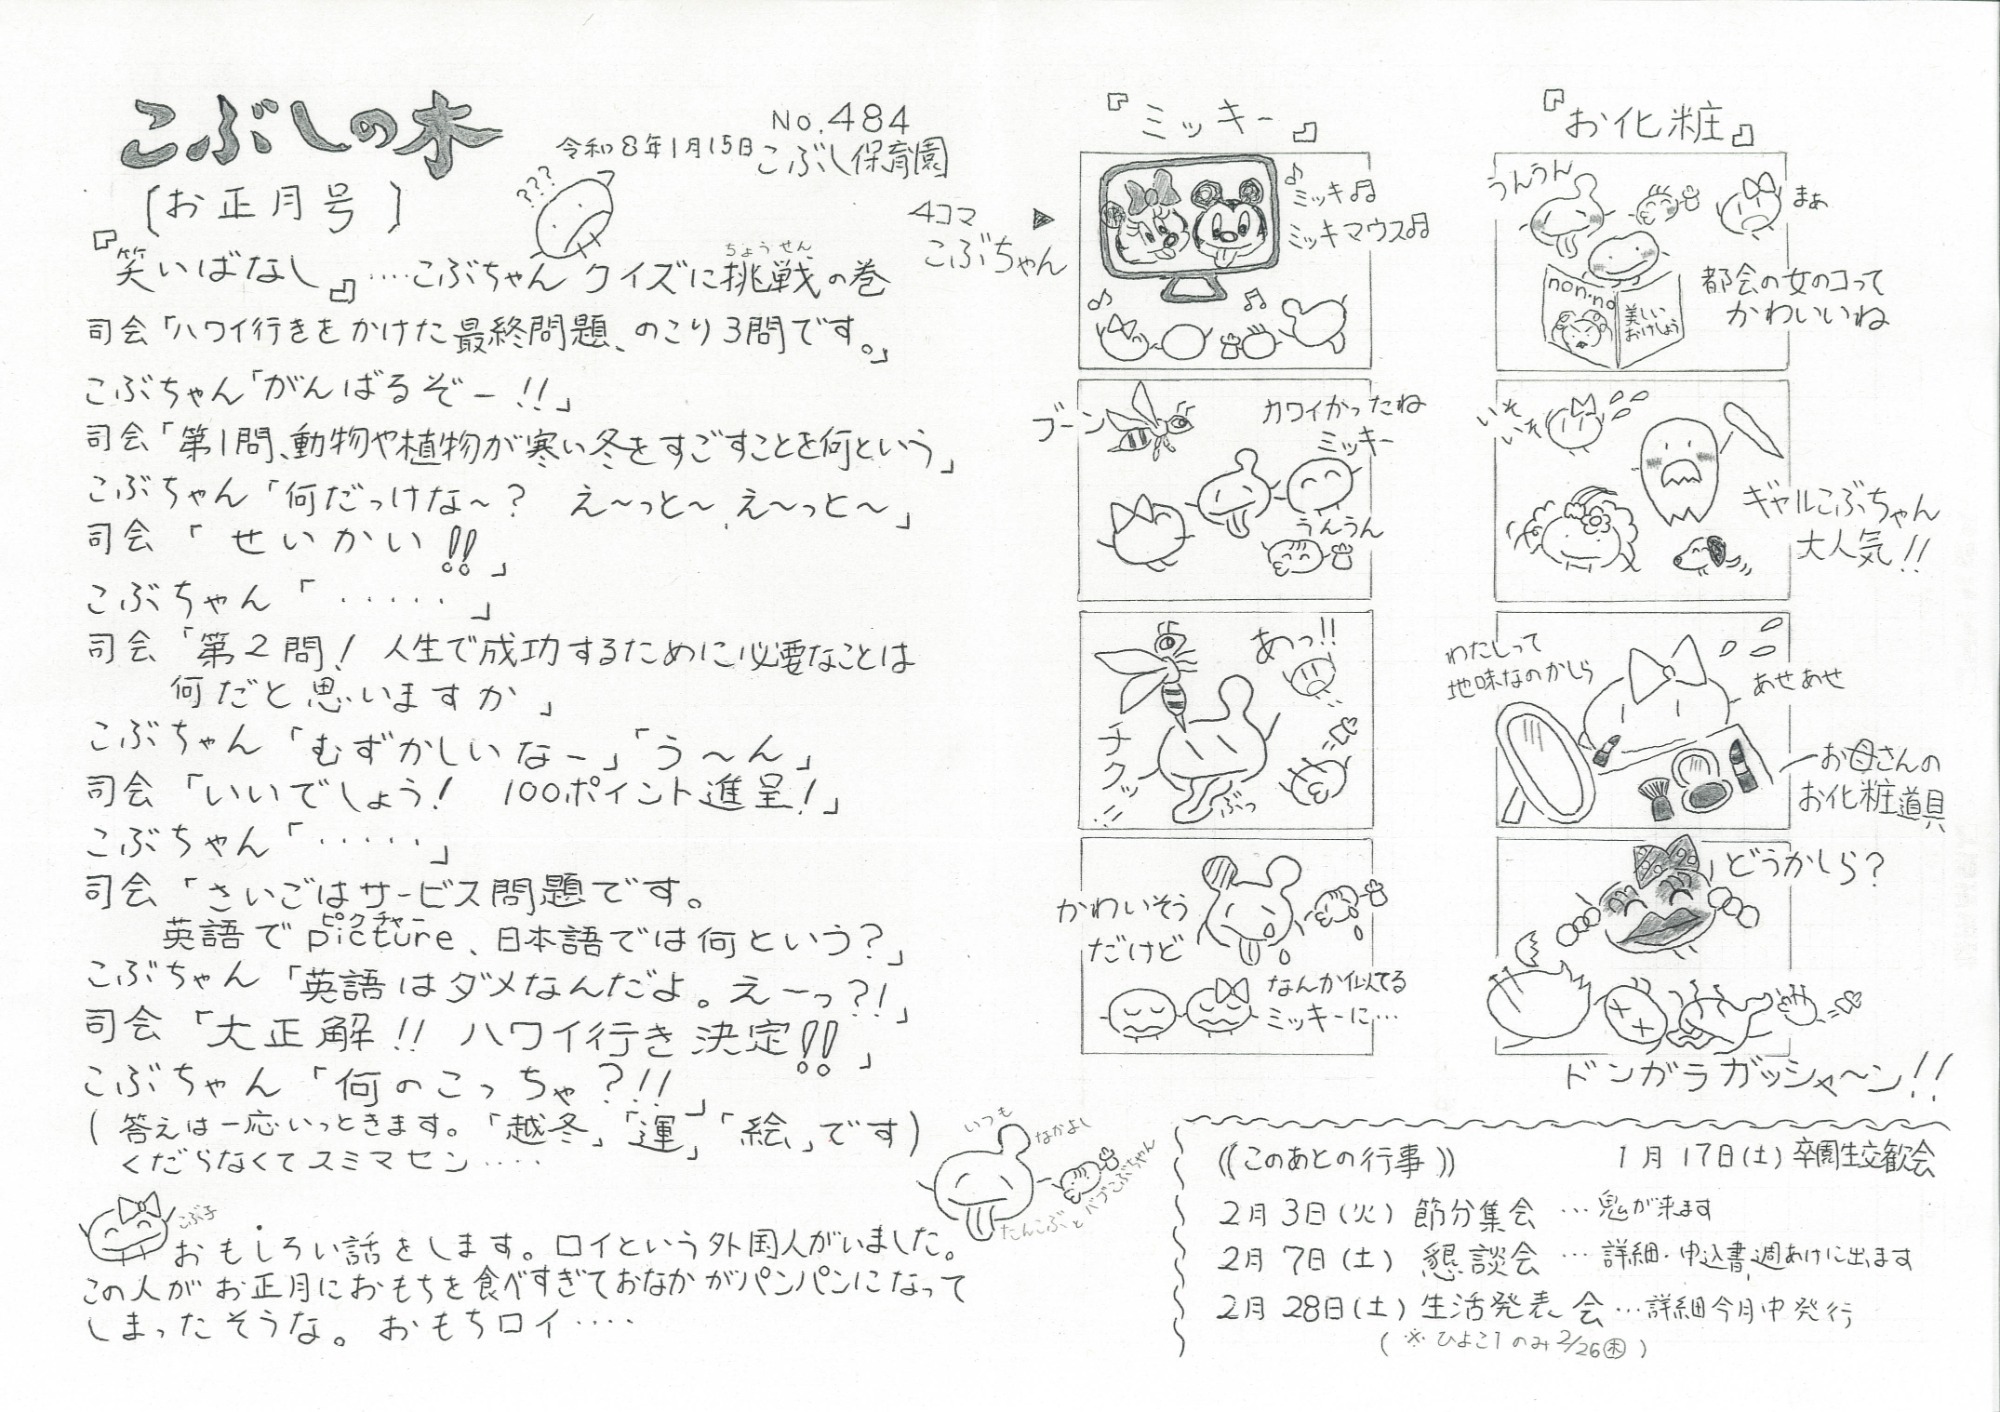 こぶしの木
〔お正月号〕
令和8年1月15日
No.484
こぶし保育園
???
『笑いばなし』‥‥こぶちゃん クイズに挑戦の巻
ちょうせん
司会「ハワイ行きをかけた最終問題、のこり3問です。」
こぶちゃん「がんばるぞー!!」
司会「第1問、動物や植物が寒い冬をすごすことを何という」
こぶちゃん「何だっけな〜? え〜っと〜、え〜っと〜」
司会「せいかい!!」
こぶちゃん「‥‥‥」
司会「第2問! 人生で成功するために必要なことは
何だと思いますか」
こぶちゃん「むずかしいなー」「う〜ん」
司会「いいでしょう! 100ポイント進呈!」
こぶちゃん「‥‥‥」
司会「さいごはサービス問題です。
英語でpicture、日本語では何という?」
ピクチャー
こぶちゃん「英語はダメなんだよ。えーっ?!」
司会「大正解!! ハワイ行き決定!!」
こぶちゃん「何のこっちゃ?!!」
(答えは一応いっときます。「越冬」「運」「絵」です)
くだらなくてスミマセン‥‥
いつも
なかよし
たんこぶとバブこぶちゃん
こぶ子
おもしろい話をします。ロイという外国人がいました。
この人がお正月におもちを食べすぎておなかがパンパンになって
しまったそうな。おもちロイ‥‥
4コマ
こぶちゃん
『ミッキー』
♪ミッキ♫
ミッキマウス♫
ブーン
カワイかったね
ミッキー
うんうん
あっ!!
チクッ
ぷっ
かわいそう
だけど
なんか似てる
ミッキーに…
『お化粧』
うんうん
まぁ
non・no
美しい
おけしょう
都会の女のコって
かわいいね
いそ
いそ
ギャルこぶちゃん
大人気!!
わたしって
地味なのかしら
あせあせ
お母さんの
お化粧道具
どうかしら?
ドンガラガッシャ〜ン!!
《このあとの行事》
1月17日(土)卒園生交歓会
2月3日(火)節分集会 …鬼が来ます
2月7日(土)懇談会 …詳細・申込書、週あけに出ます
2月28日(土)生活発表会…詳細今月中発行
(※ひよこ1のみ2/26㊍)